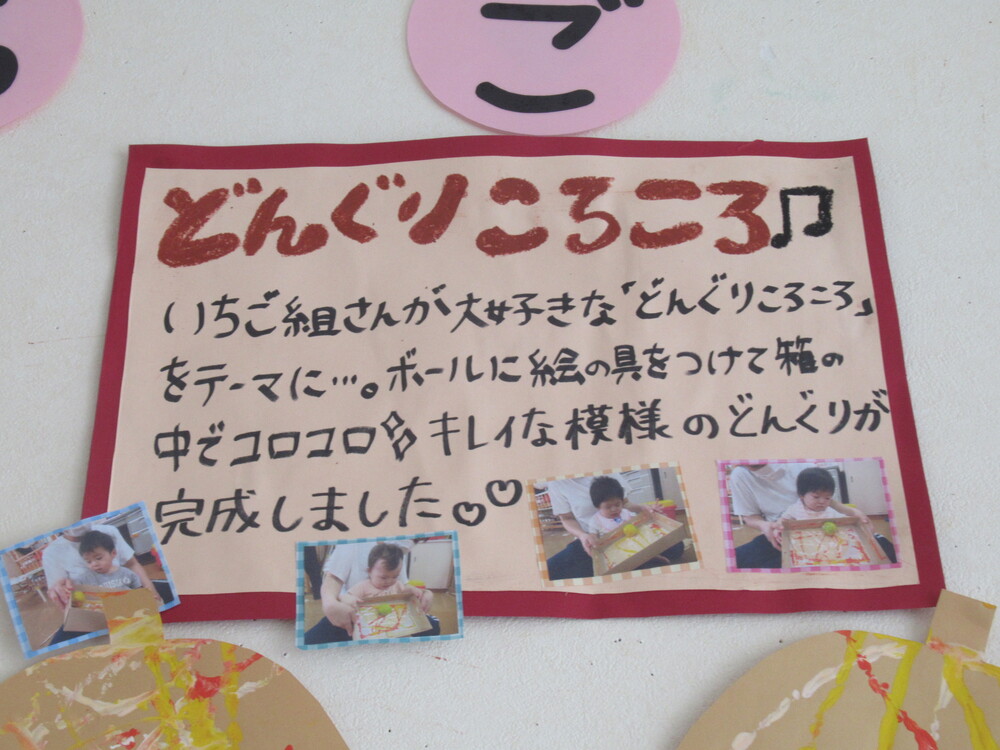 ご
どんぐりころころ♫
いちご組さんが大好きな「どんぐりころころ」
をテーマに…。ボールに絵の具をつけて箱の
中でコロコロ✨キレイな模様のどんぐりが
完成しました♡♡